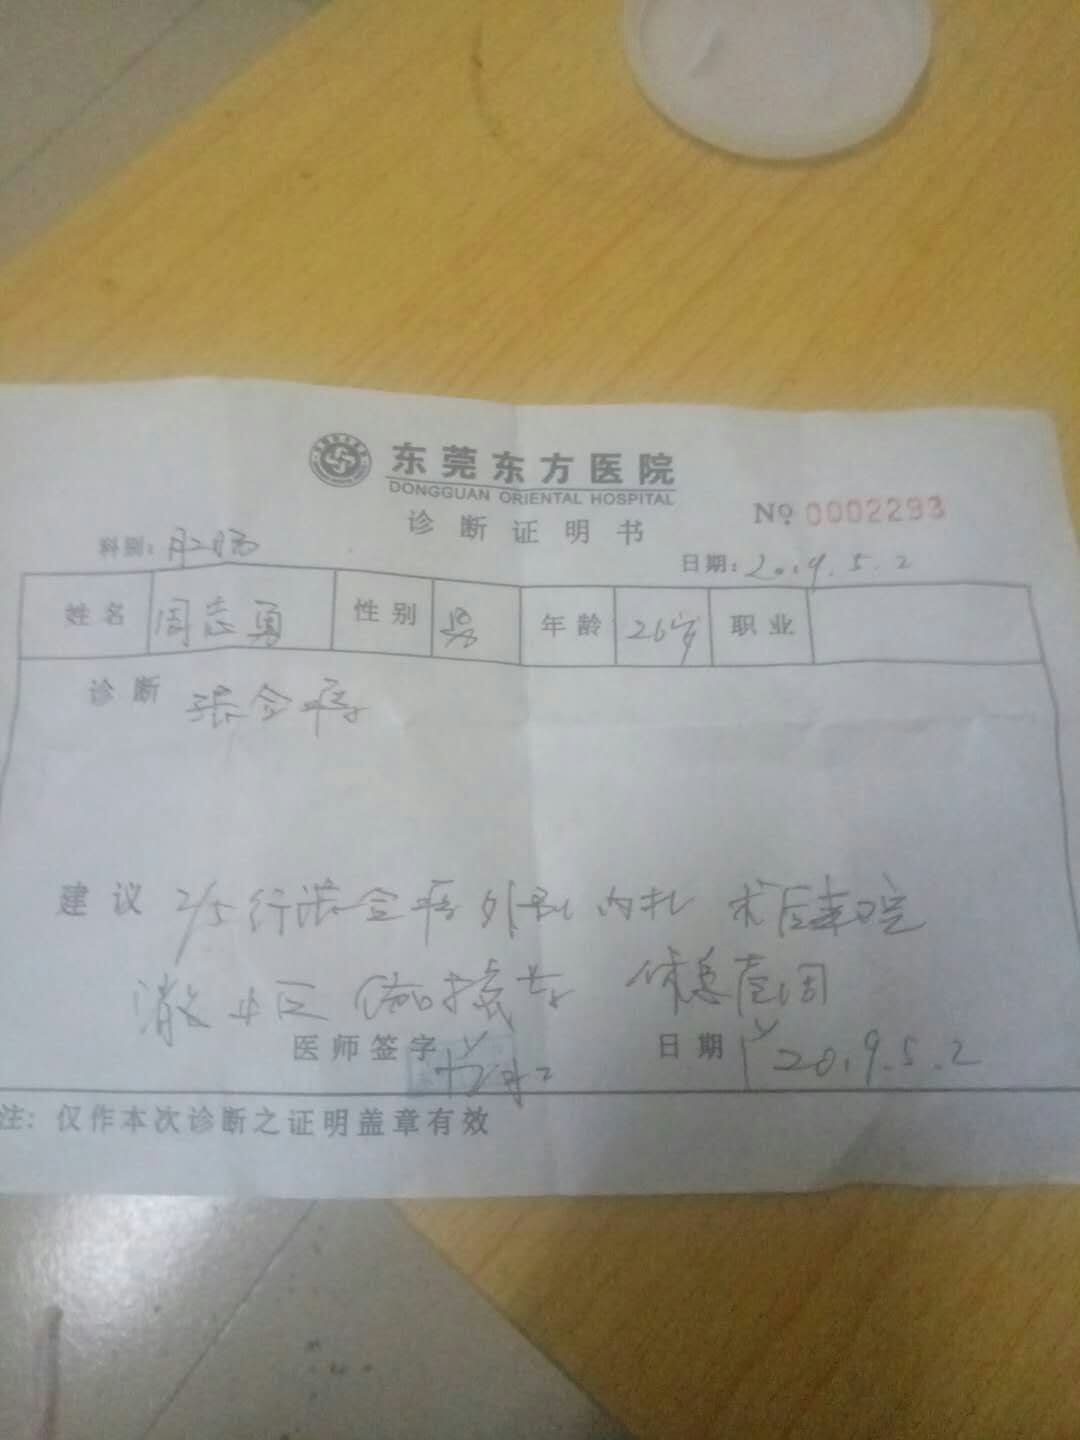 东莞东方医院
DONGGUAN ORIENTAL HOSPITAL
诊断证明书 № 0002293
科别: 肛肠 日期: 2019.5.2
姓名 周志勇 性别 男 年龄 26岁 职业
诊断 混合痔
建议 2/5行混合痔外剥内扎 术后
休息壹周
医师签字 日期 2019.5.2
注: 仅作本次诊断之证明盖章有效